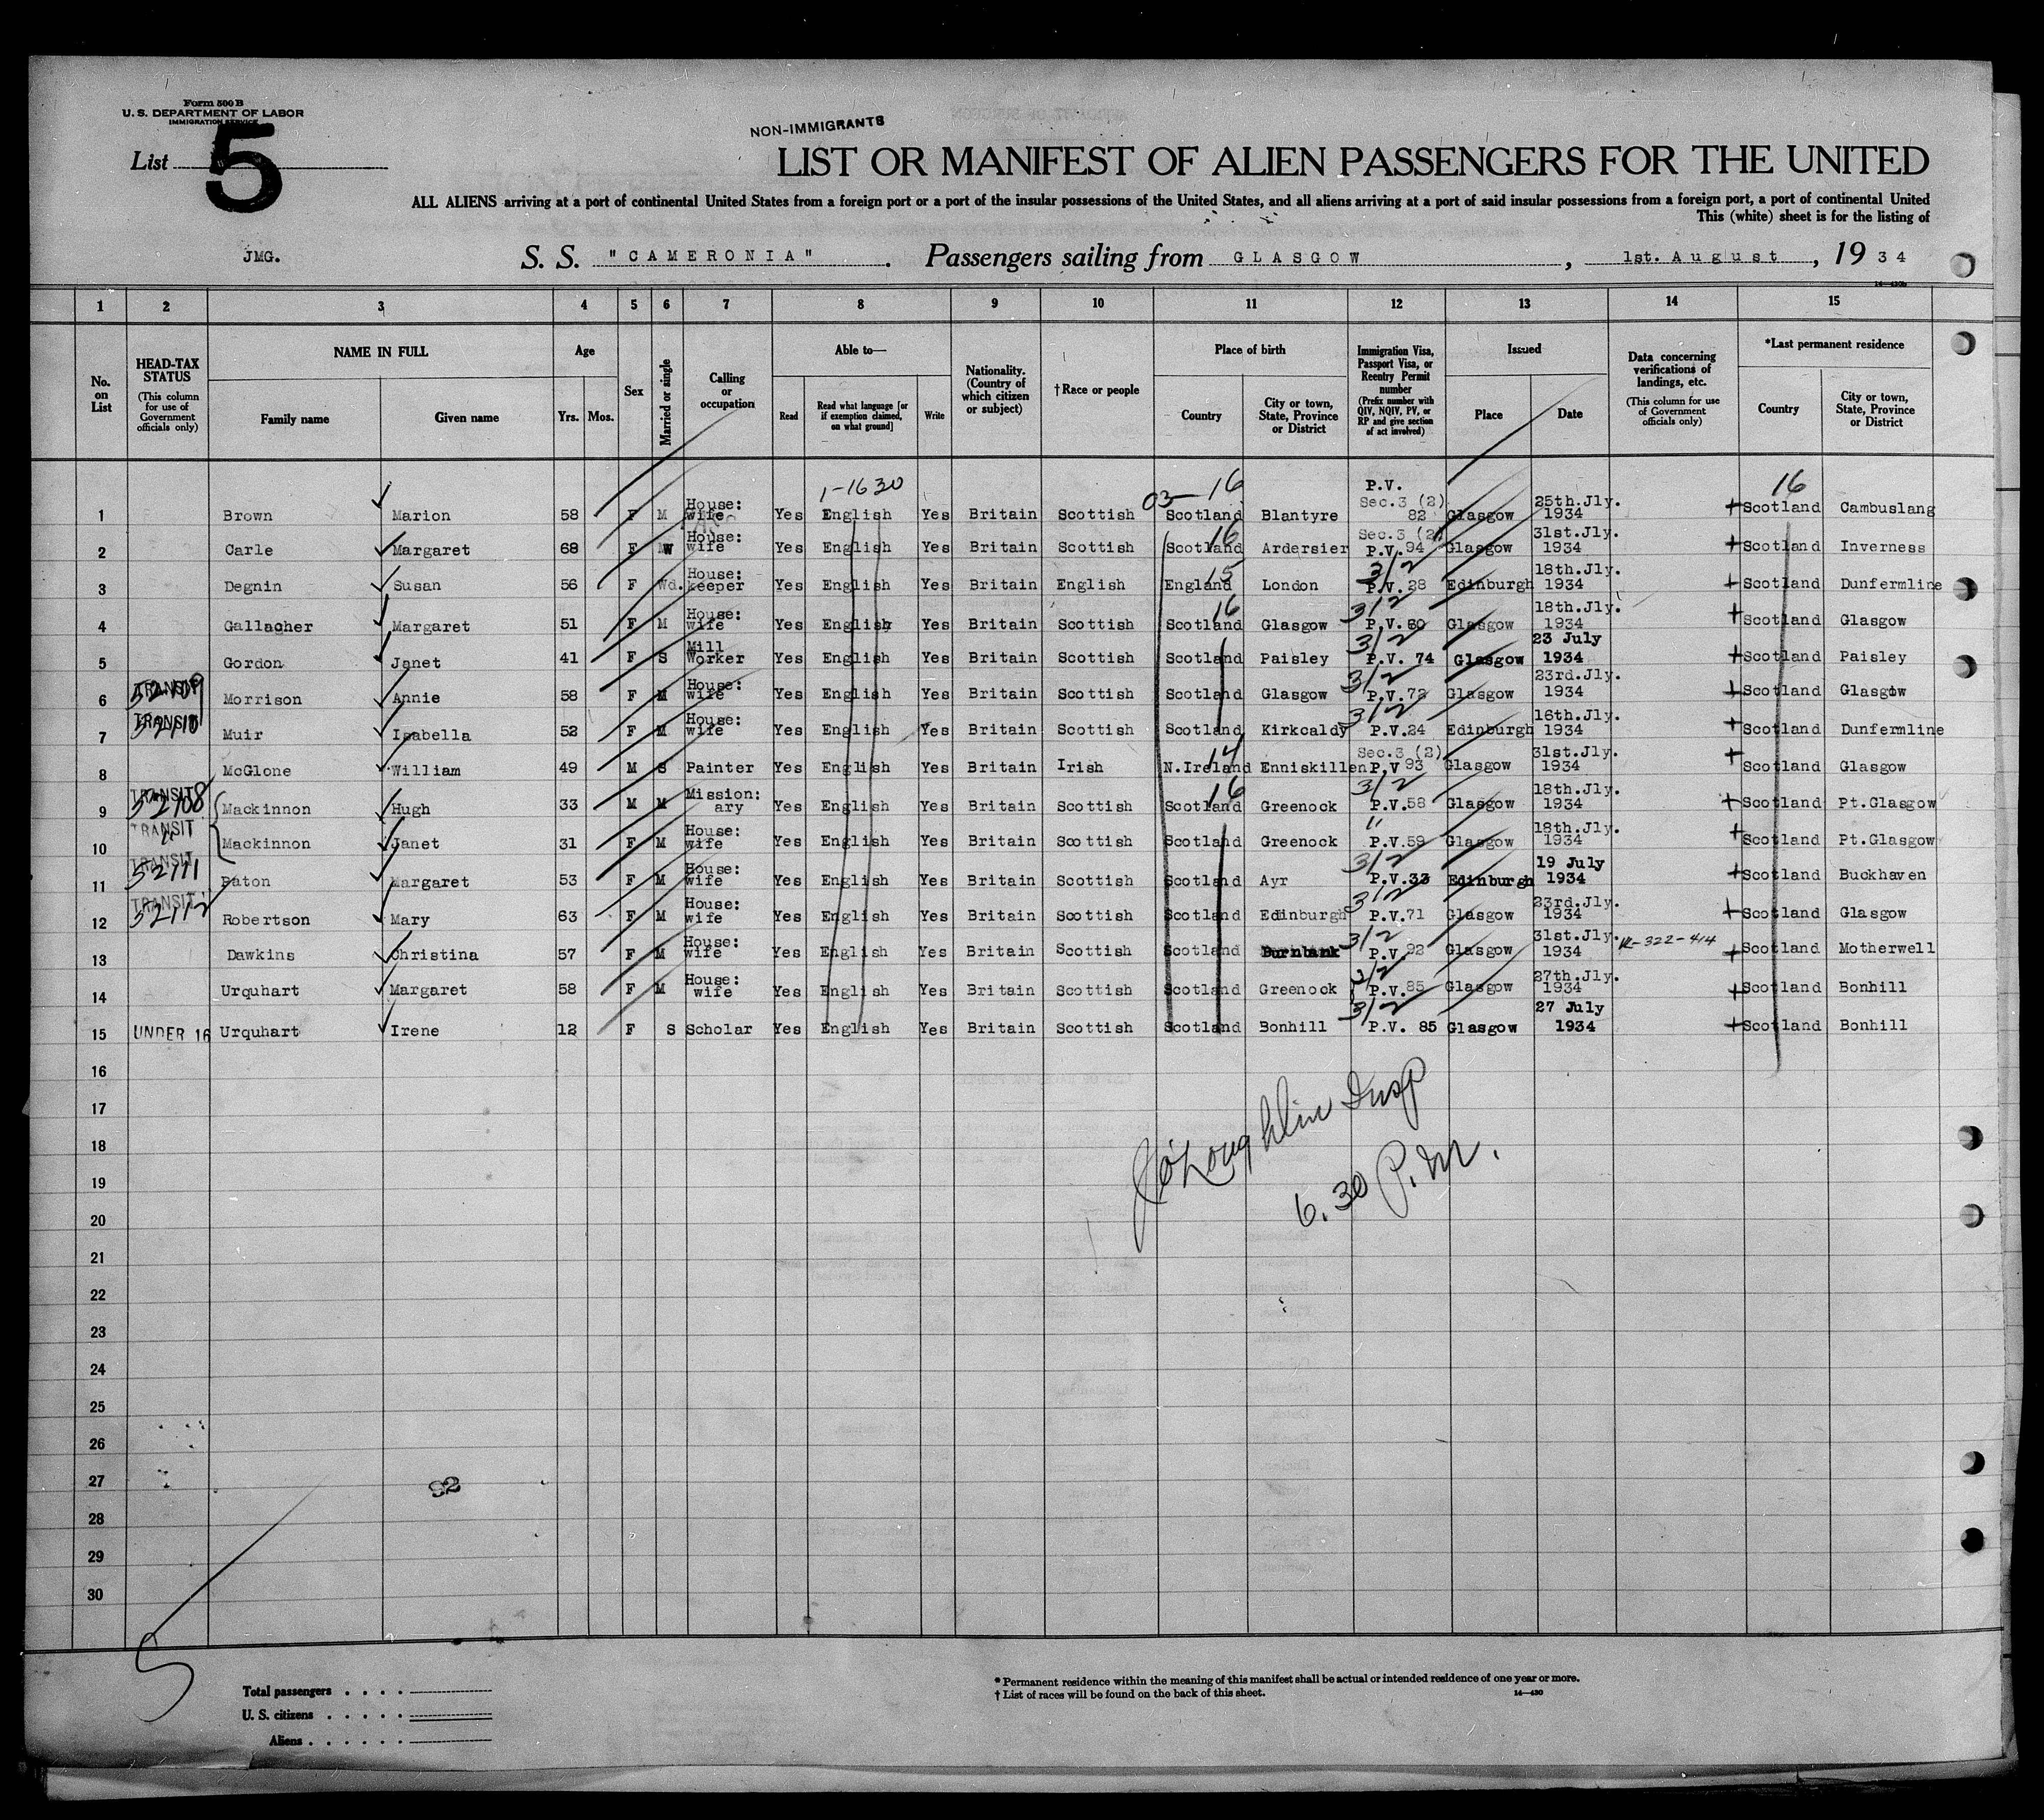 Form 500 B
U. S. DEPARTMENT OF LABOR
IMMIGRATION SERVICE
List 5
NON-IMMIGRANTS
LIST OR MANIFEST OF ALIEN PASSENGERS FOR THE UNITED
ALL ALIENS arriving at a port of continental United States from a foreign port or a port of the insular possessions of the United States, and all aliens arriving at a port of said insular possessions from a foreign port, a port of continental United
This (white) sheet is for the listing of
JMG. S. S. "CAMERONIA". Passengers sailing from GLASGOW, 1st. August, 19 34
14—430b
1 2 3 4 5 6 7 8 9 10 11 12 13 14 15
No. on List
HEAD-TAX STATUS (This column for use of Government officials only)
NAME IN FULL Family name Given name
Age Yrs. Mos.
Sex
Married or single
Calling or occupation
Able to— Read Read what language [or if exemption claimed, on what ground] Write
Nationality. (Country of which citizen or subject)
† Race or people
Place of birth Country City or town, State, Province or District
Immigration Visa, Passport Visa, or Reentry Permit number (Prefix number with QIV, NQIV, PV, or RP and give section of act involved)
Issued Place Date
Data concerning verifications of landings, etc. (This column for use of Government officials only)
*Last permanent residence Country City or town, State, Province or District
1-1630 03-16 16
1 Brown Marion 58 F M House: wife Yes English Yes Britain Scottish Scotland Blantyre P.V. Sec.3 (2) 82 Glasgow 25th.Jly. 1934 Scotland Cambuslang
2 Carle Margaret 68 F W House: wife Yes English Yes Britain Scottish 16 Scotland Ardersier Sec.3 (2) P.V. 94 Glasgow 31st.Jly. 1934 Scotland Inverness
3 Degnin Susan 56 F Wd. House: keeper Yes English Yes Britain English 15 England London 3/2 P.V. 28 Edinburgh 18th.Jly. 1934 Scotland Dunfermline
4 Gallacher Margaret 51 F M House: wife Yes English Yes Britain Scottish 16 Scotland Glasgow 3/2 P.V. 60 Glasgow 18th.Jly. 1934 Scotland Glasgow
5 Gordon Janet 41 F S Mill Worker Yes English Yes Britain Scottish Scotland Paisley 3/2 P.V. 74 Glasgow 23 July 1934 Scotland Paisley
6 TRANSIT 52109 Morrison Annie 58 F M House: wife Yes English Yes Britain Scottish Scotland Glasgow 3/2 P.V.72 Glasgow 23rd.Jly. 1934 Scotland Glasgow
7 TRANSIT 52110 Muir Isabella 52 F M House: wife Yes English Yes Britain Scottish Scotland Kirkcaldy 3/2 P.V.24 Edinburgh 16th.Jly. 1934 Scotland Dunfermline
8 McGlone William 49 M S Painter Yes English Yes Britain Irish 14 N.Ireland Enniskillen Sec.3 (2) P.V 93 Glasgow 31st.Jly. 1934 Scotland Glasgow
9 TRANSIT 52108 Mackinnon Hugh 33 M M Mission: ary Yes English Yes Britain Scottish 16 Scotland Greenock 3/2 P.V.58 Glasgow 18th.Jly. 1934 Scotland Pt.Glasgow
10 TRANSIT " Mackinnon Janet 31 F M House: wife Yes English Yes Britain Scottish Scotland Greenock " P.V.59 Glasgow 18th.Jly. 1934 Scotland Pt.Glasgow
11 TRANSIT 52111 Paton Margaret 53 F M House: wife Yes English Yes Britain Scottish Scotland Ayr 3/2 P.V.33 Edinburgh 19 July 1934 Scotland Buckhaven
12 TRANSIT 52112 Robertson Mary 63 F M House: wife Yes English Yes Britain Scottish Scotland Edinburgh 3/2 P.V.71 Glasgow 23rd.Jly. 1934 Scotland Glasgow
13 Dawkins Christina 57 F M House: wife Yes English Yes Britain Scottish Scotland Burnbank 3/2 P.V. 92 Glasgow 31st.Jly. 1934 R-322-414 Scotland Motherwell
14 Urquhart Margaret 58 F M House: wife Yes English Yes Britain Scottish Scotland Greenock 3/2 P.V.85 Glasgow 27th.Jly. 1934 Scotland Bonhill
15 UNDER 16 Urquhart Irene 12 F S Scholar Yes English Yes Britain Scottish Scotland Bonhill 3/2 P.V. 85 Glasgow 27 July 1934 Scotland Bonhill
16
17
18
19
20
21
22
23
24
25
26
27
28
29
30
J O'Loughlin Insp
6.30 P.M.
92
5
Total passengers . . . .
U. S. citizens . . . . .
Aliens . . . . . .
* Permanent residence within the meaning of this manifest shall be actual or intended residence of one year or more.
† List of races will be found on the back of this sheet. 14—430